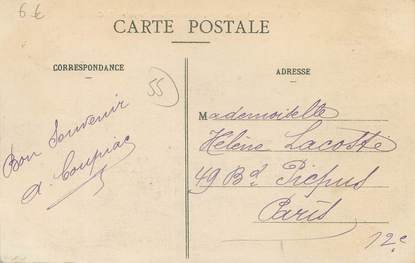 6 €
CARTE POSTALE
CORRESPONDANCE
ADRESSE
55
Bon Souvenir
A. Coupiac
Mademoiselle
Hélène Lacoste
49 Bd. Picpus
Paris
12e